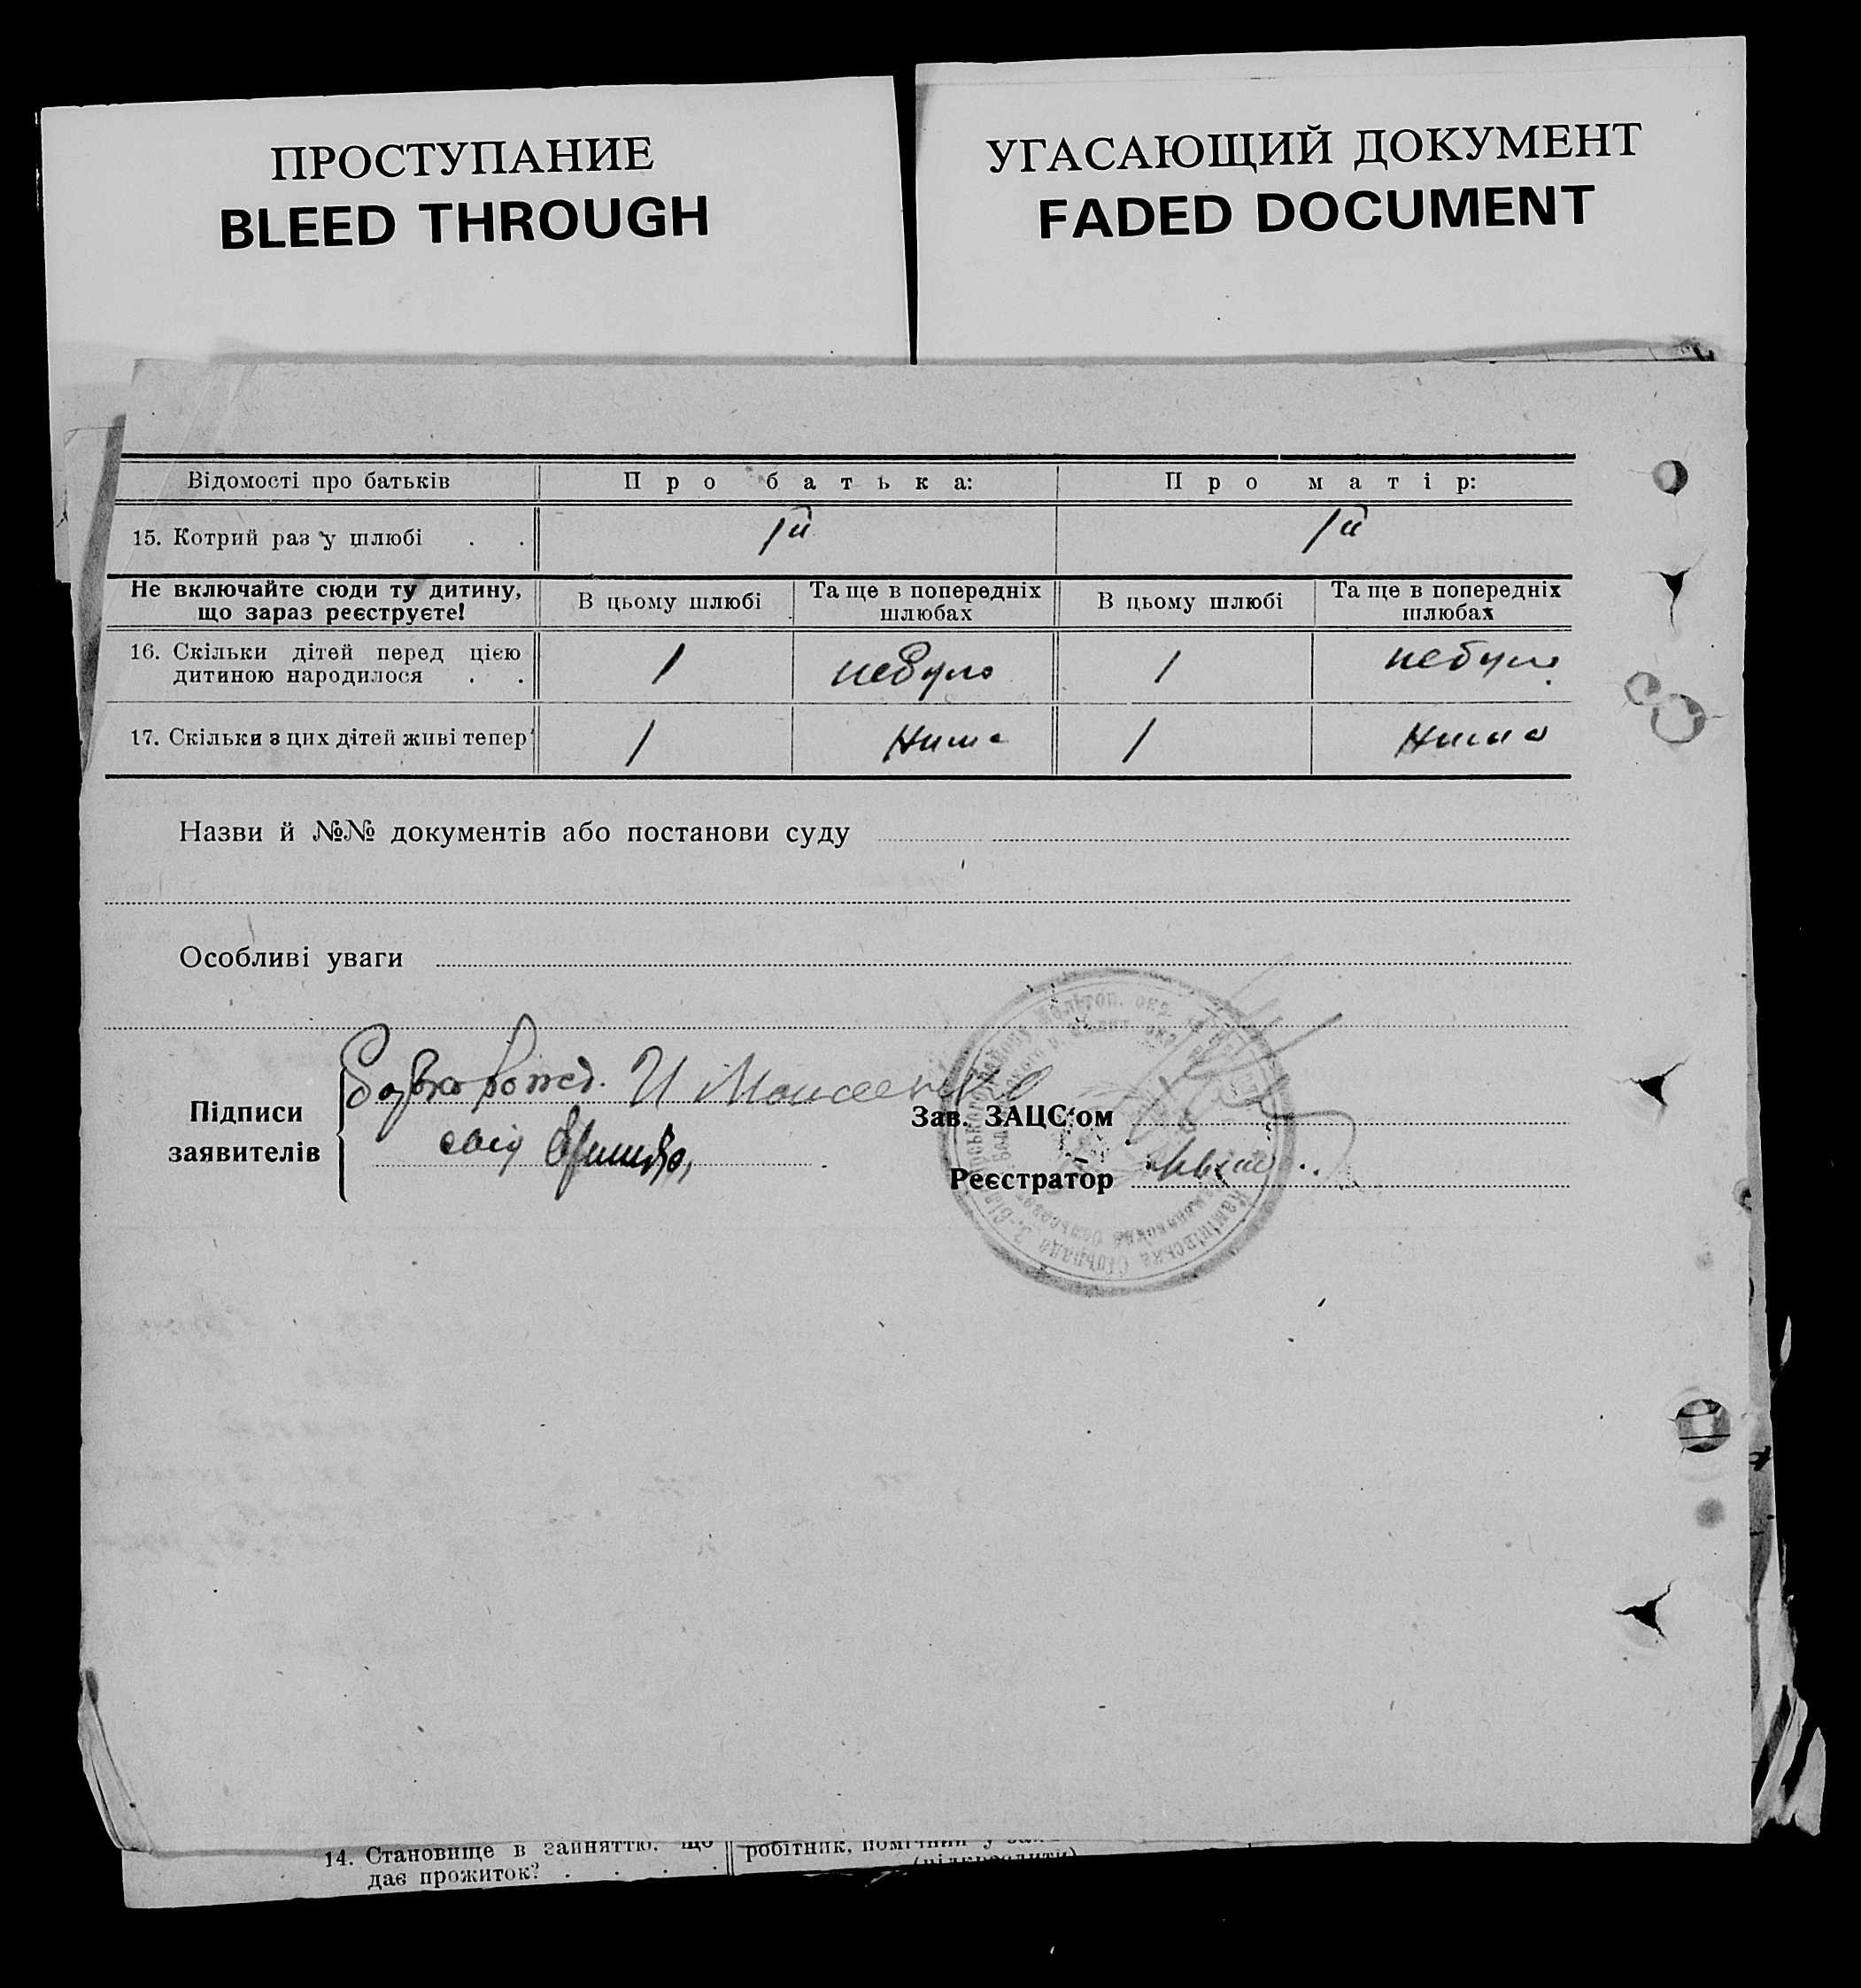 ПРОСТУПАНИЕ
BLEED THROUGH
УГАСАЮЩИЙ ДОКУМЕНТ
FADED DOCUMENT
Відомості про батьків Про батька: Про матір:
15. Котрий раз у шлюбі . . 1й 1й
Не включайте сюди ту дитину, що зараз реєструєте! В цьому шлюбі Та ще в попередніх шлюбах В цьому шлюбі Та ще в попередніх шлюбах
16. Скільки дітей перед цією дитиною народилося . . 1 небуло 1 небуло
17. Скільки з цих дітей живі тепер 1 Нима 1 Нима
Назви й №№ документів або постанови суду
Особливі уваги
Підписи заявителів
И Моисеенко
Зав. ЗАЦС'ом
Реєстратор
14. Становище в занняттю, що дає прожиток? . . . .
робітник, помічний у
(підкреслити)